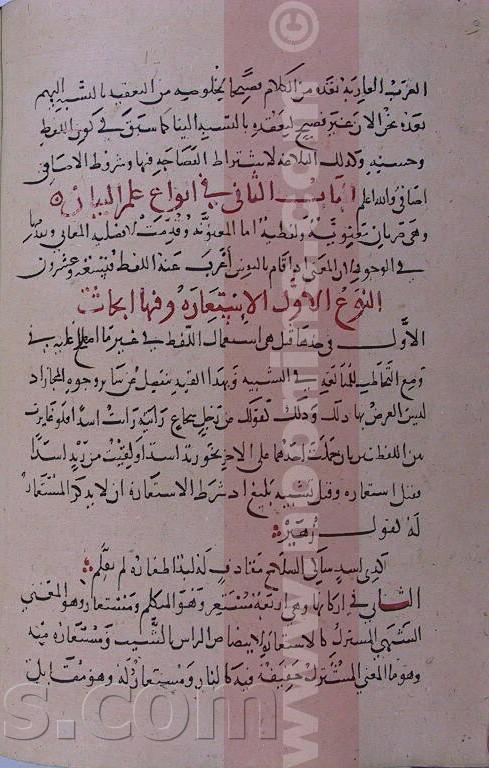 العرب العاربة نعده من الكلام فصيحا لخلوصه من التعقيد بالنسبة اليهم
نعده نحن الان غير فصيح لتعقده بالنسبة الينا كما سبق في كون اللفظ
وحسنيه وكذلك البلاغة لاشتراط الفصاحة فيها وشروط الاضافي
اضافي والله اعلم الباب الثاني في انواع علم البيان
وهي ضربان معنوية ولفظية اما المعنوية وقدمت لافضلية المعاني
في الوجود لان المعنى اذا قام بالنفس اعرب عنه اللفظ فتسعة وعشرون
النوع الاول الاستعارة وفيها ابحاث
الاول في حدها قيل هي استعمال اللفظ في غير ما اصطلح عليه في
وضع التخاطب للمبالغة في التشبيه وبهذا القيد تنفصل عن سائر وجوه المجاز اذ
ليس الغرض بها ذلك وذلك كقولك من تخيل شجاع رايته رايت اسدا فلو غايرت
من اللفظين بان حملت احدهما على الاخر نحو زيد اسد او لقيت من زيد اسدا
فقيل استعارة وقيل تشبيه بليغ اذ شرط الاستعارة ان لا يذكر المستعار
له كقول زهير
لدى اسد شاكي السلاح مقاذف له لبد اظفاره لم تقلم
الثاني في اركانها وهي اربعة مستعير وهو المتكلم ومستعار وهو المعنى
التشبيهي المشترك كالاستعارة لابيضاض الراس الشيب ومستعار منه
وهو ما المعنى المشترك حقيقة فيه كالنار ومستعار له وهو مقابل
www.hibonline.com ©
s.com